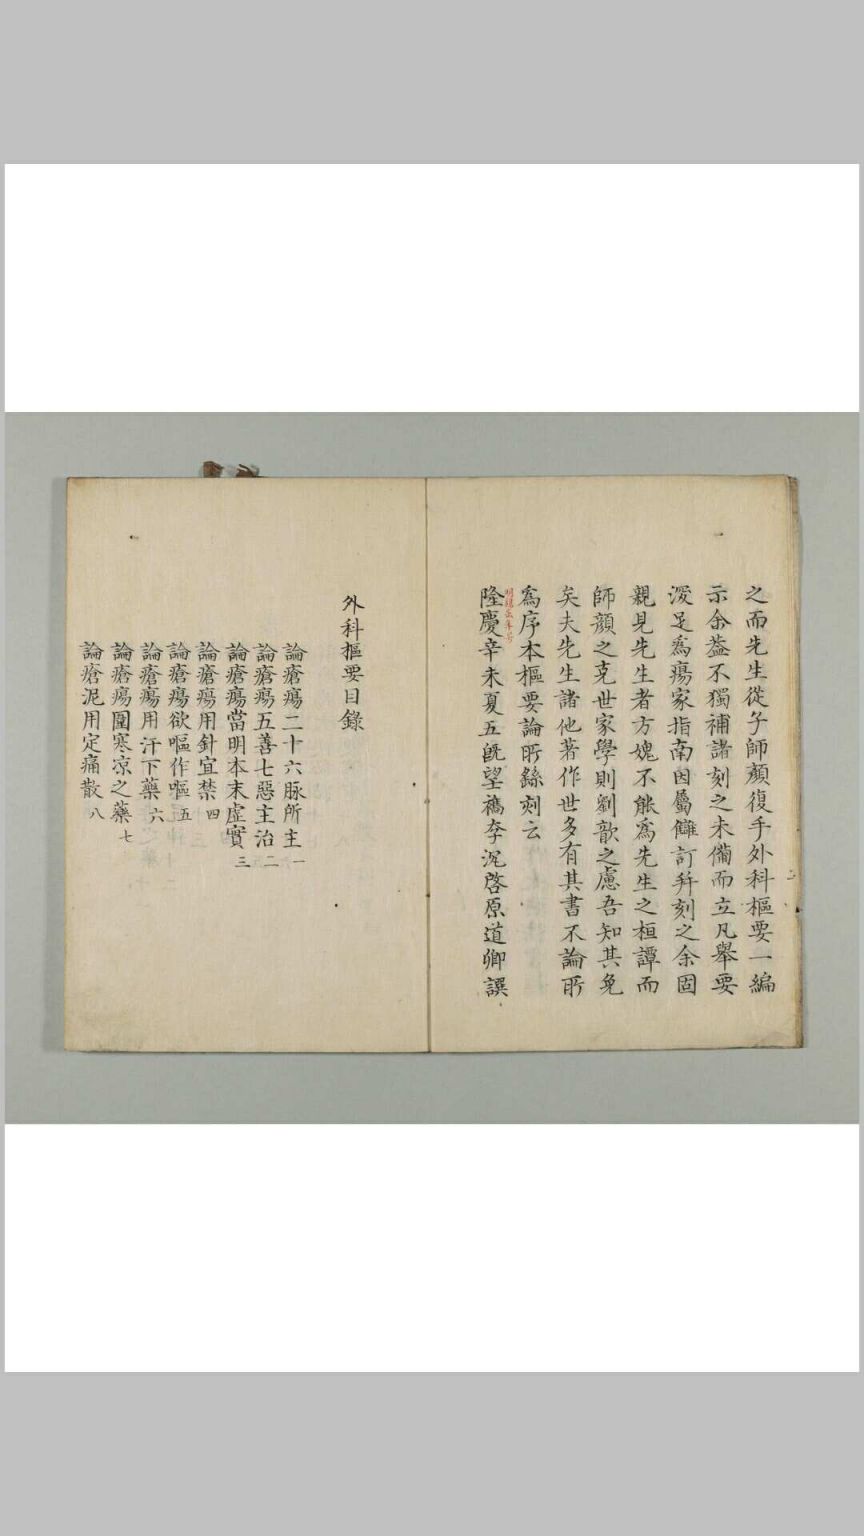 之而先生從子師顏復手外科樞要一編
示余益不獨補諸刻之未備而立凡舉要
深足爲瘍家指南因屬讎訂并刻之余固
親見先生者方媿不能爲先生之桓譚而
師顏之克世家學則劉歆之慮吾知其免
矣夫先生諸他著作世多有其書不論所
爲序本樞要論所繇刻云
隆慶辛未夏五旣望檇李沈啓原道卿譔
二
外科樞要目錄
論瘡瘍二十六脉所主 一
論瘡瘍五善七惡主治 二
論瘡瘍當明本末虛實 三
論瘡瘍用針宜禁 四
論瘡瘍欲嘔作嘔 五
論瘡瘍用汗下藥 六
論瘡瘍圍寒凉之藥 七
論瘡泥用定痛散 八